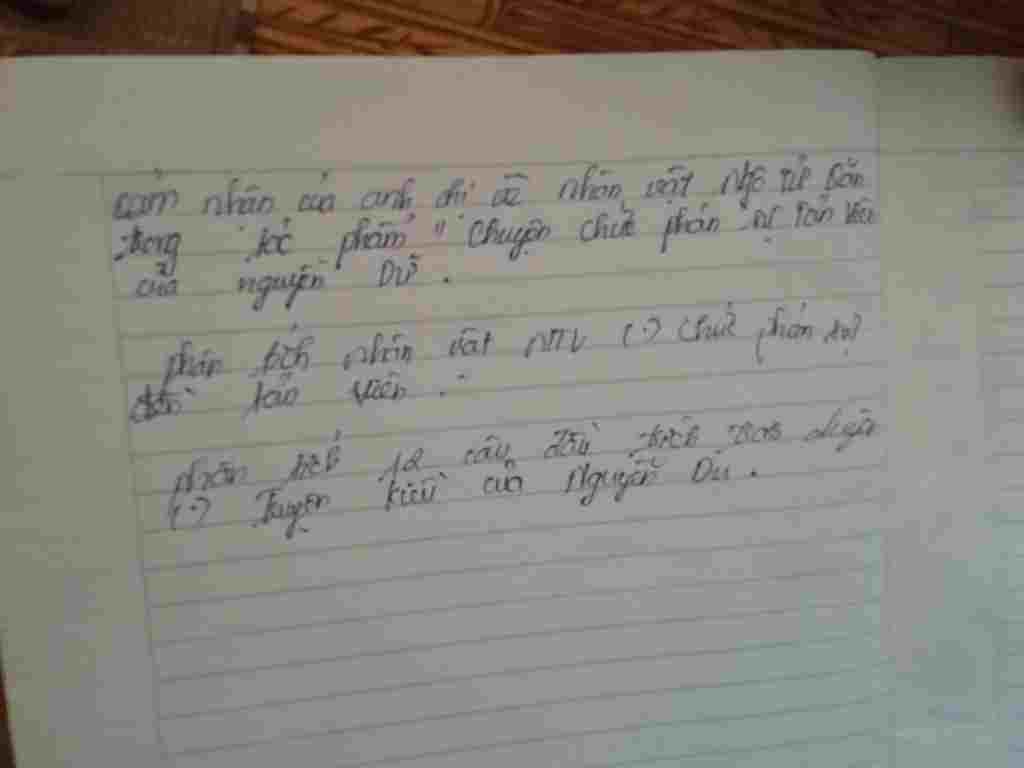 cảm nhận của anh chị về nhân vật Ngô Tử Văn
trong tác phẩm " Chuyện chức phán sự Tản Viên
của nguyễn Dữ .
phân tích nhân vật NTV (.) chức phán sự
đền tản viên .
phân tích 12 câu đầu trích trao duyên
(.) Truyện kiều của Nguyễn Du .